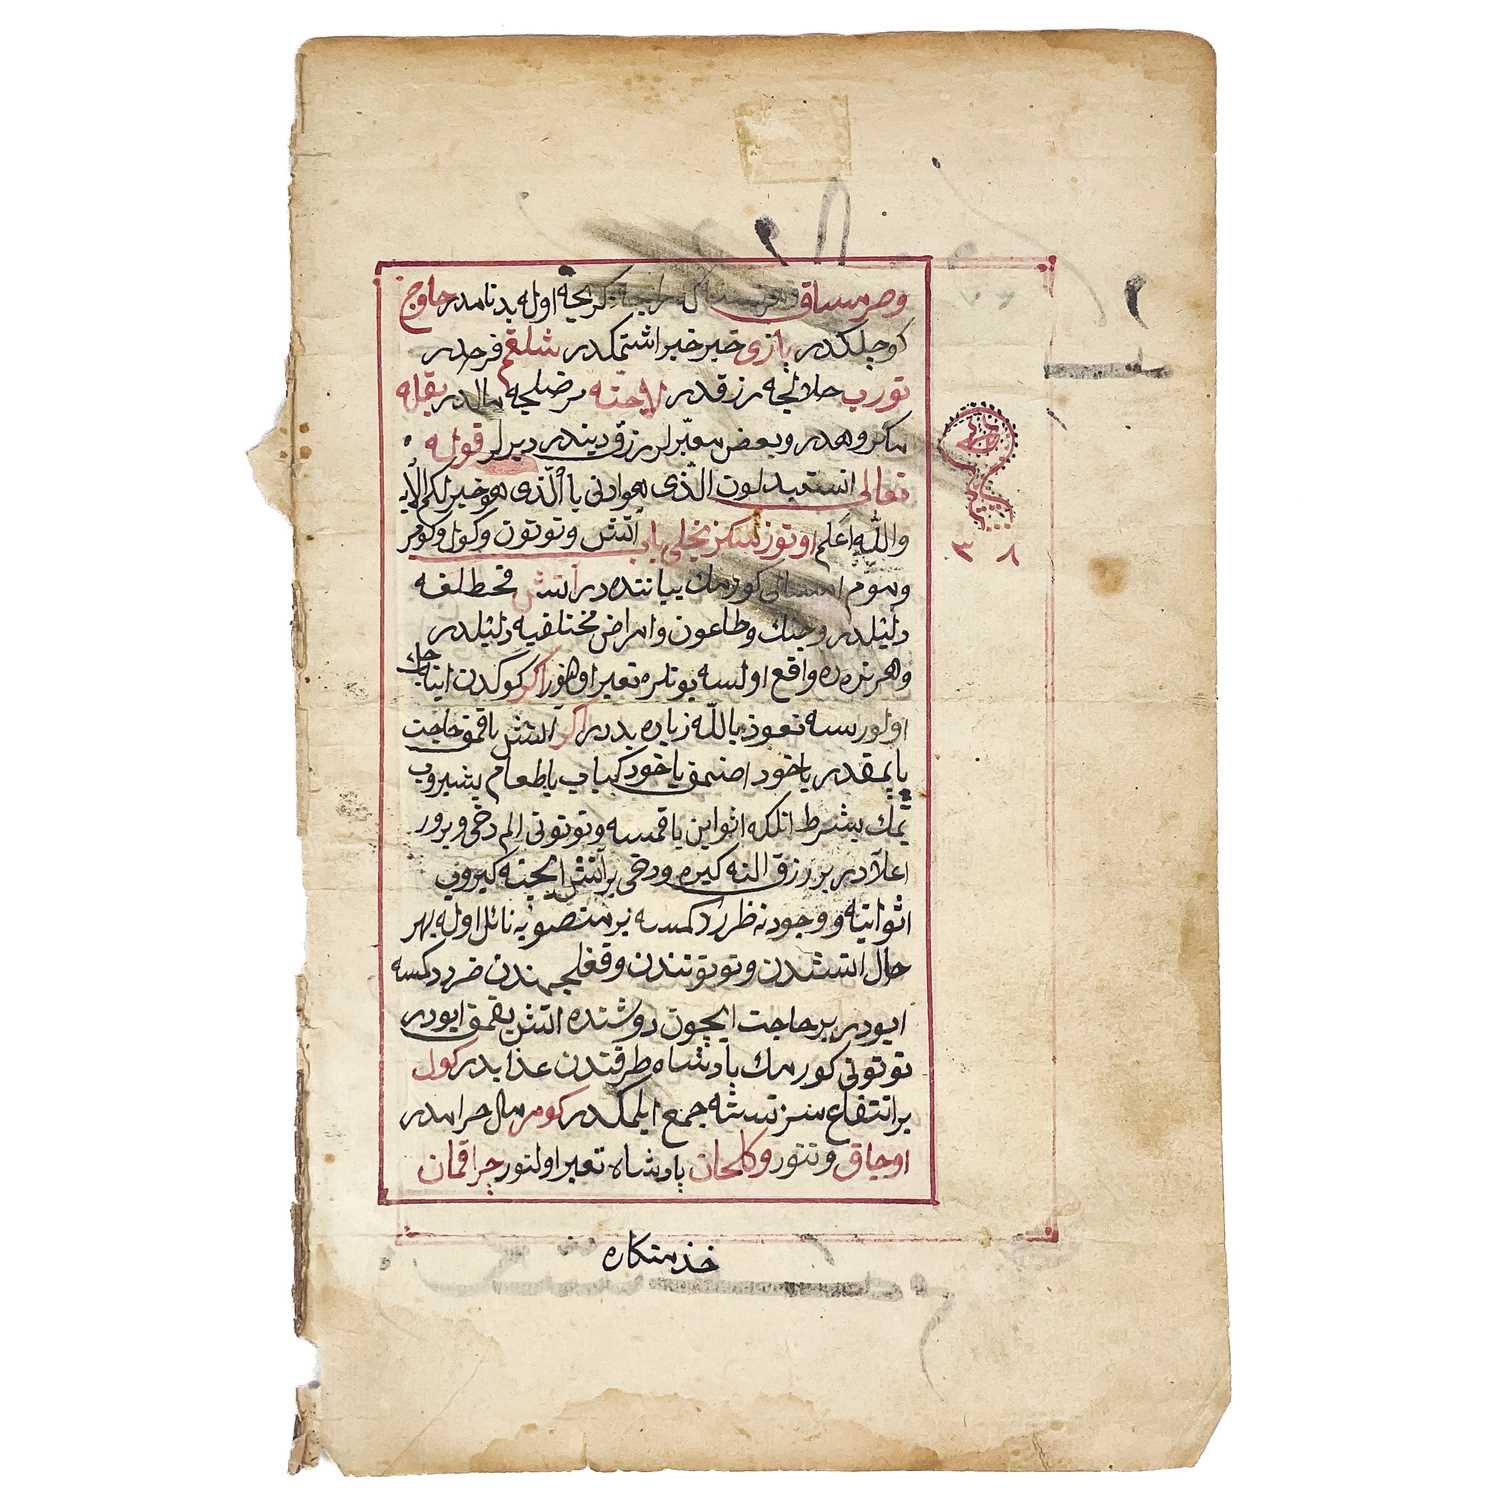 وصرمساق كريحه اوله بدنامدر حاوج
كوجلكدر يازى خير خبر اشتمكدر شلغم فرحدر
تورب حلالجه رزقدر لاحنه مرضلجه مالدر بقله
مكروهدر وبعض معبرلر رزق ديندر ديرلر قوله
تعالى اتستبدلون الّذى هوادنى باالّذى هو خيرلكم الأيه
والله اعلم اوتوز سكزنجى باب اتش وتوتون وكول وكومر
وموم كورمك بياننده در آتش قحطلغه
دليلدر وجنك وطاعون وامراض مختلفيه دليلدر
وهر نرده واقع اولسه بوتلره تعبير اكر كوكدن اينه جك
اولورسه نعوذ بالله زياده بدر اكر آتش ياقمق حاجت
ياپمقدر ياخود اصنمق ياخود كباب يا طعام پشيروب
يمك بشرط انلكه اثوابن ياقمسه وتوتونى الم دخى ويرور
اعلادر بر رزق النه كيره ودخى بر آتش ايچنه كيروب
اثوابنه ووجودنه ضرر دكمسه بر منصوبه نائل اوله بهر
حال اتشدن وتوتوندن وقغلجمندن ضرر دكمسه
ايودر بر حاجت ايچون دوشنده اتش يقمق ايودر
توتونى كورمك پادشاه طرفندن عذابدر كول
بر انتفاع سز نسنه جمع ايلمكدر كومر مال حرامدر
اوجاق وتنور وكلحان پادشاه تعبير اولنور چراقمان
٣٨
خذمتكاره